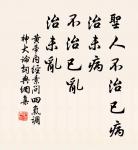 聖人不治已病
治未病
不治已亂
治未亂
黃帝內經素問四氣調
神大論詞典網集